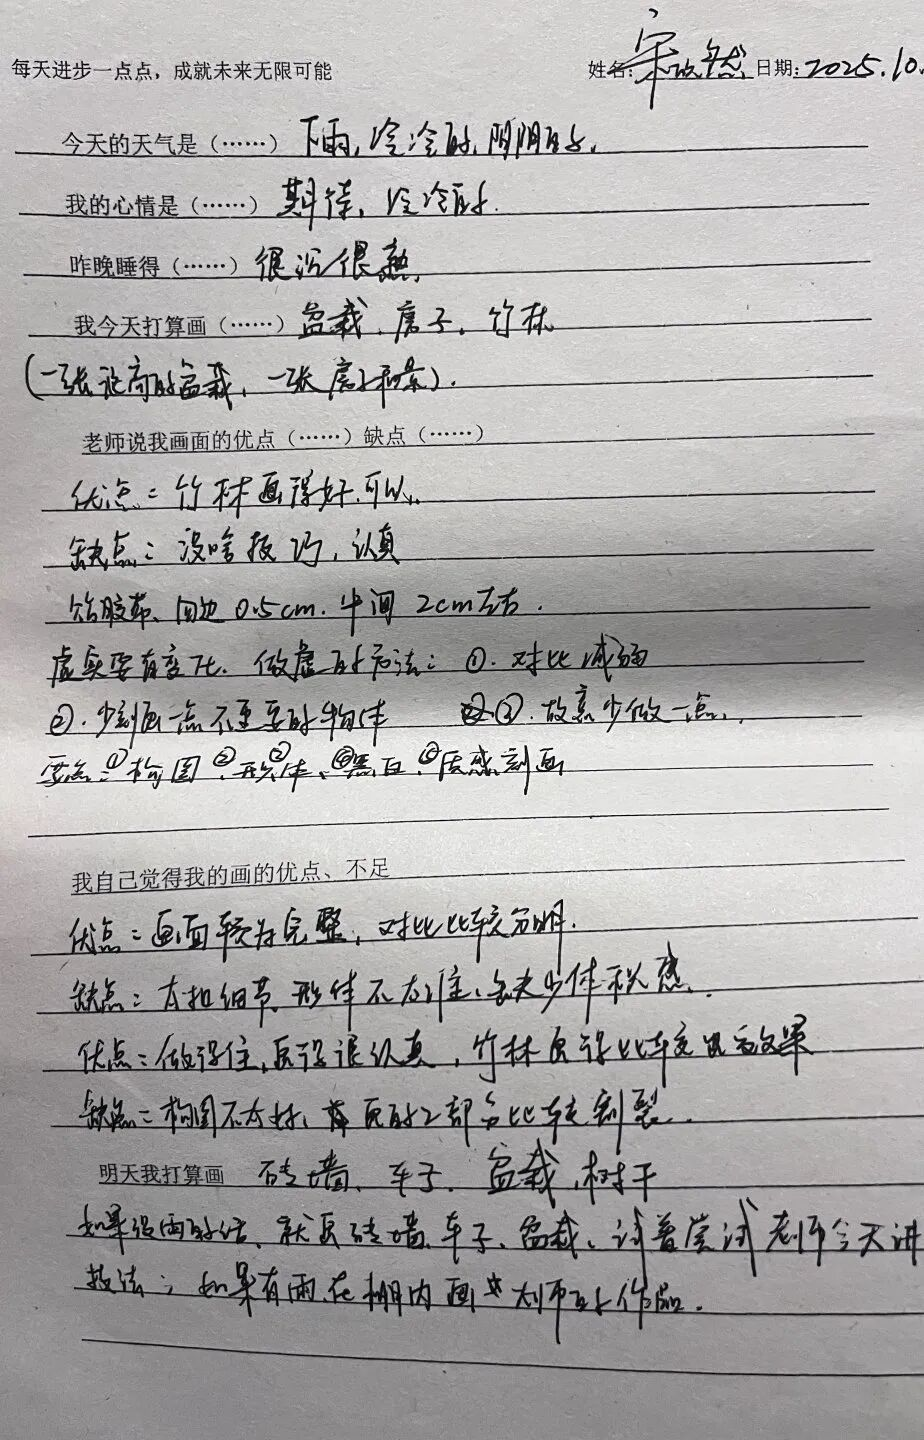 每天进步一点点，成就未来无限可能 姓名：宋欣然 日期：2025.10.
今天的天气是（……） 下雨，冷冷的，阴阴的。
我的心情是（……） 期待，冷冷的.
昨晚睡得（……） 很沉很熟.
我今天打算画（……） 盆栽、房子、竹林
(一张近高的盆栽，一张房子和景).
老师说我画面的优点（……）缺点（……）
优点：竹林画得好.可以.
缺点：没啥技巧，认真
贴胶布、四边 0.5cm. 中间 2cm左右.
虚实要有变化. 做虚的方法：①. 对比减弱
②. 少刻画一点不重要的物体 ③. 故意少做一点.
要点：①构图、②形体、④黑白、⑤质感刻画
我自己觉得我的画的优点、不足
优点：画面较为完整，对比比较分明.
缺点：太扣细节、形体不太准、缺少体积感.
优点：做得住，画得很认真，竹林画得比较出效果
缺点：构图不太好，画的2部分比较割裂.
明天我打算画 砖墙、车子、盆栽，树干
如果没雨的话、就画砖墙、车子、盆栽、试着尝试老师今天讲
技法；如果有雨、在棚内画大师的作品.